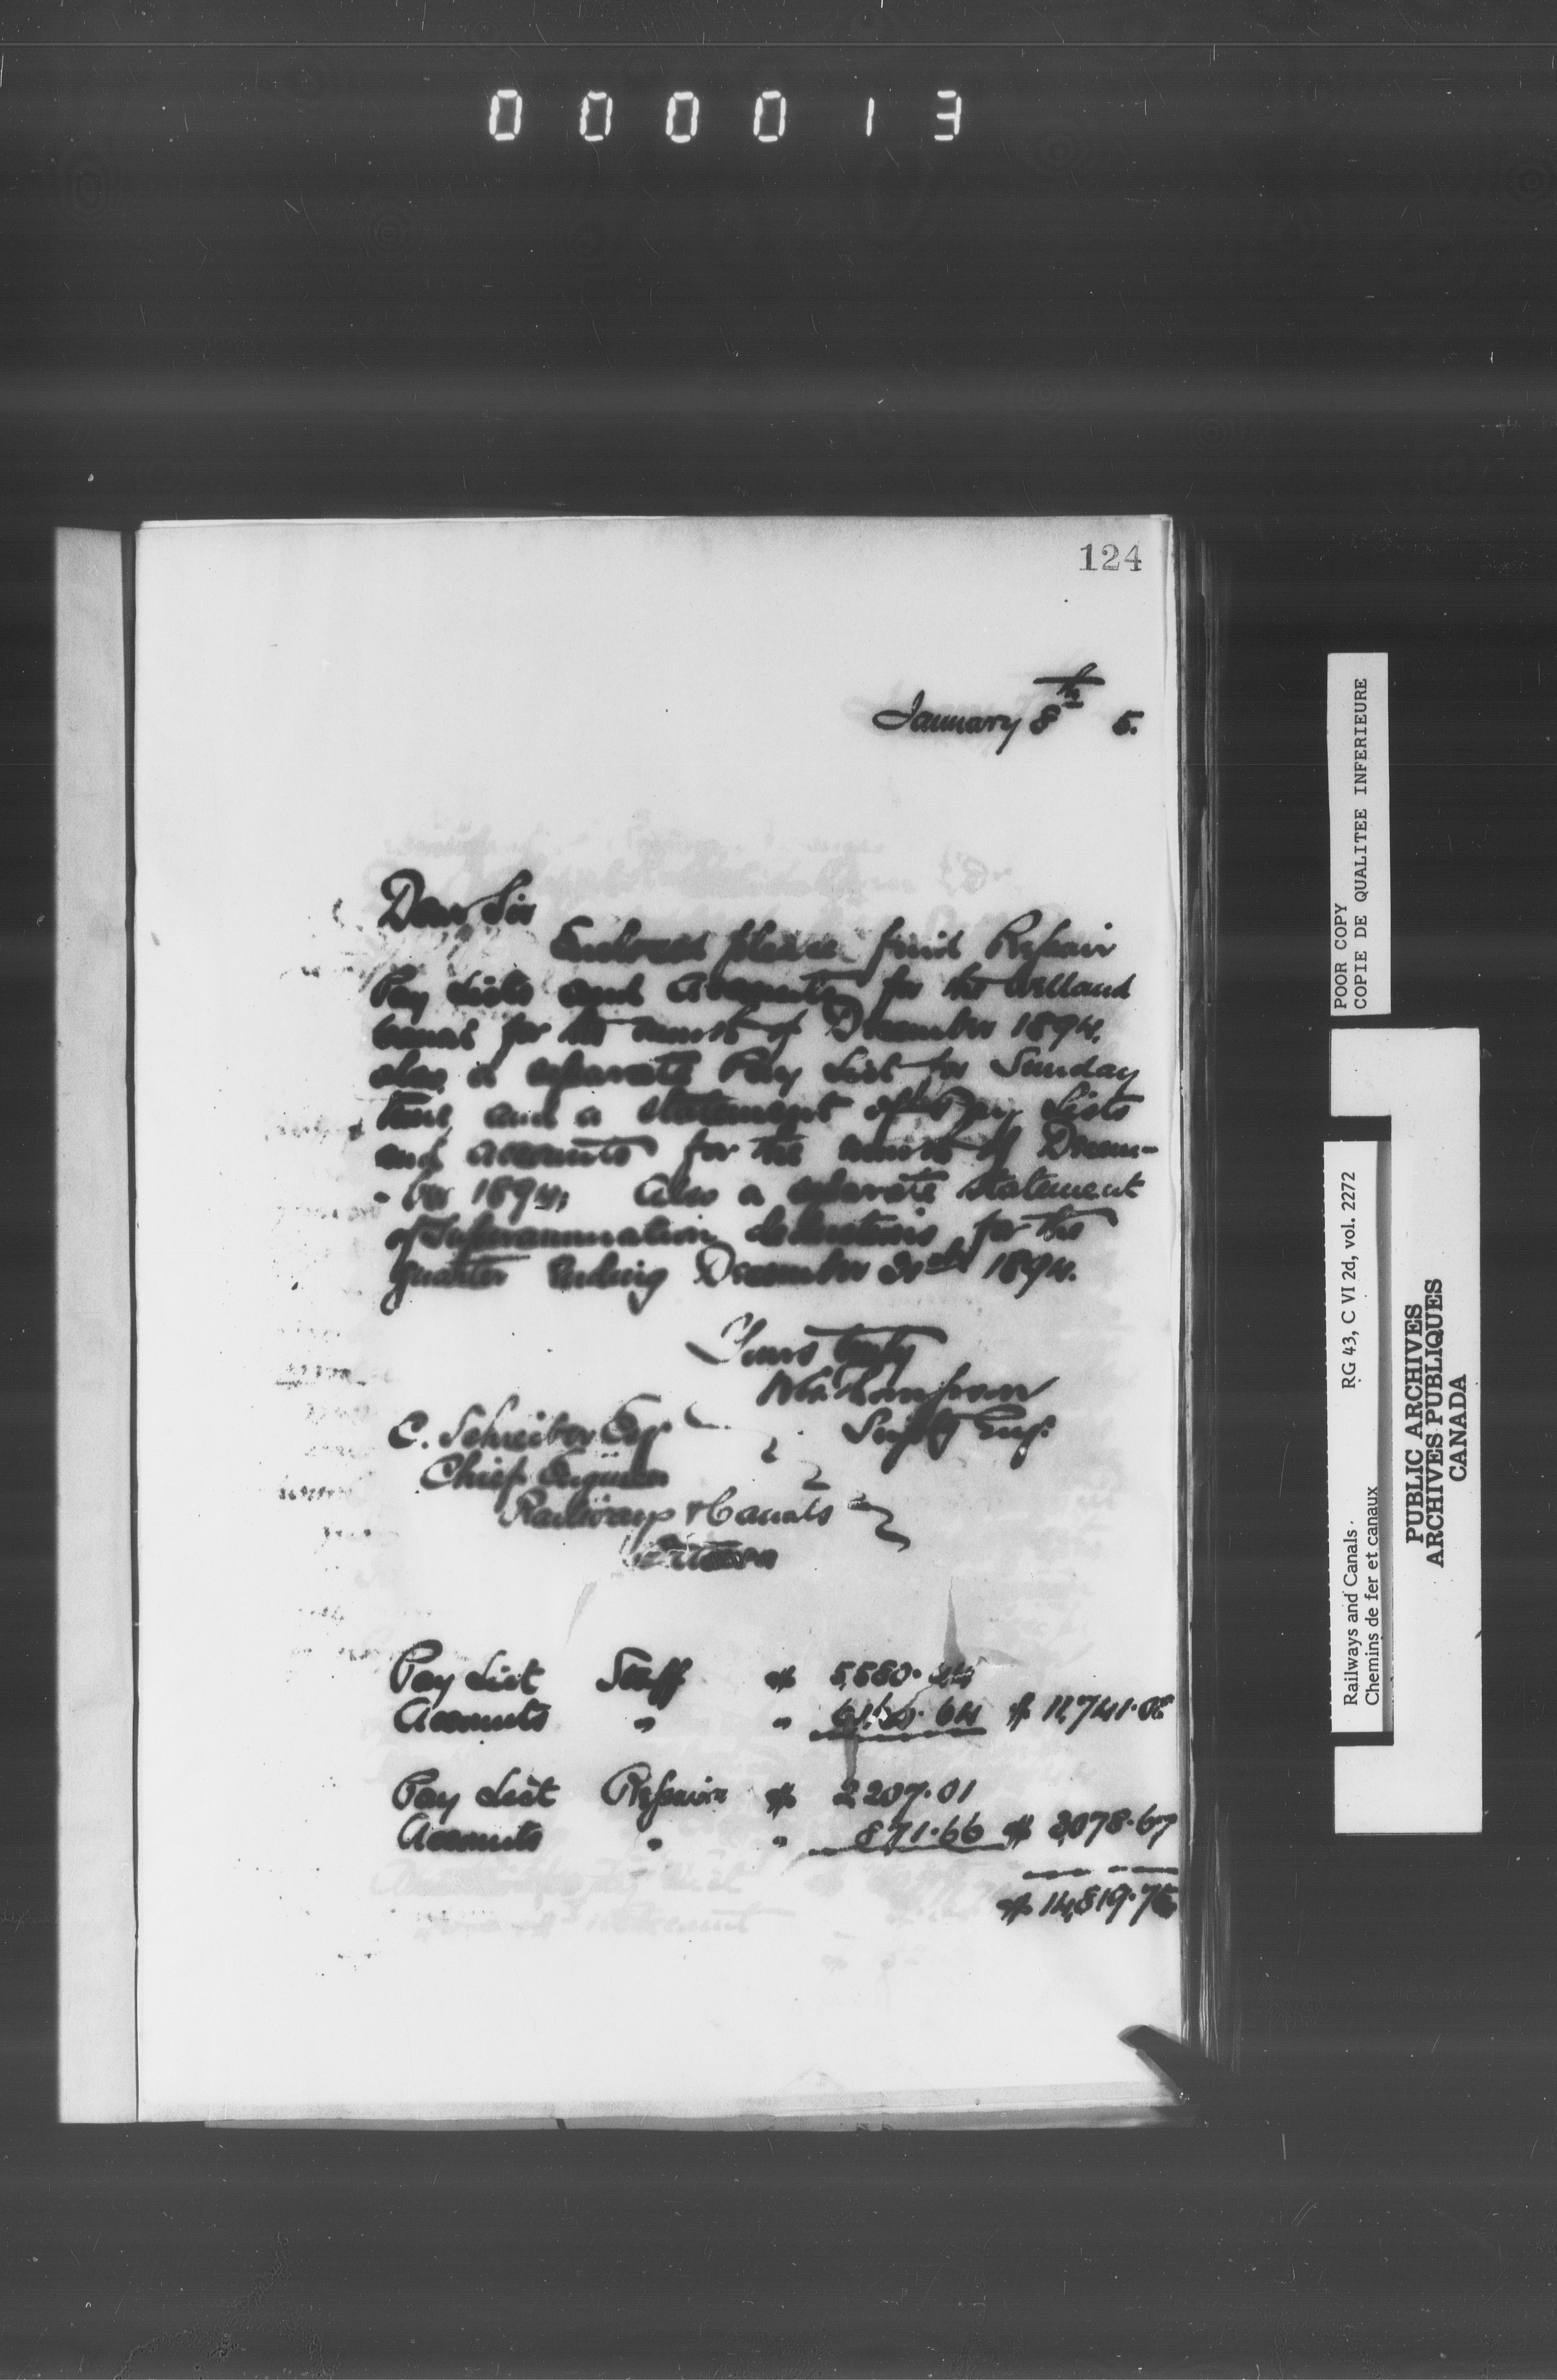 000013
124
January 8th 5.
Dear Sir
Enclosed please find Repair
Pay Lists and Accounts for the Welland
Canal for the month of December 1894.
also a separate Pay List for Sunday
time and a statement of Pay Lists
and accounts for the month of Decem-
-ber 1894; Also a separate statement
of Superannuation deductions for the
quarter Ending December 31st 1894.
Yours truly
W.G. Thompson
Suptg Eng.
C. Schreiber Esq
Chief Engineer
Railways & Canals
Ottawa
Pay List Staff $ 5,580.44
Accounts " " 6160.64 $ 11,741.08
Pay List Repairs $ 2207.01
Accounts " " 871.66 $ 3,078.67
$ 14,819.75
POOR COPY
COPIE DE QUALITEE INFERIEURE
Railways and Canals RG 43, C VI 2d, vol. 2272
Chemins de fer et canaux
PUBLIC ARCHIVES
ARCHIVES PUBLIQUES
CANADA